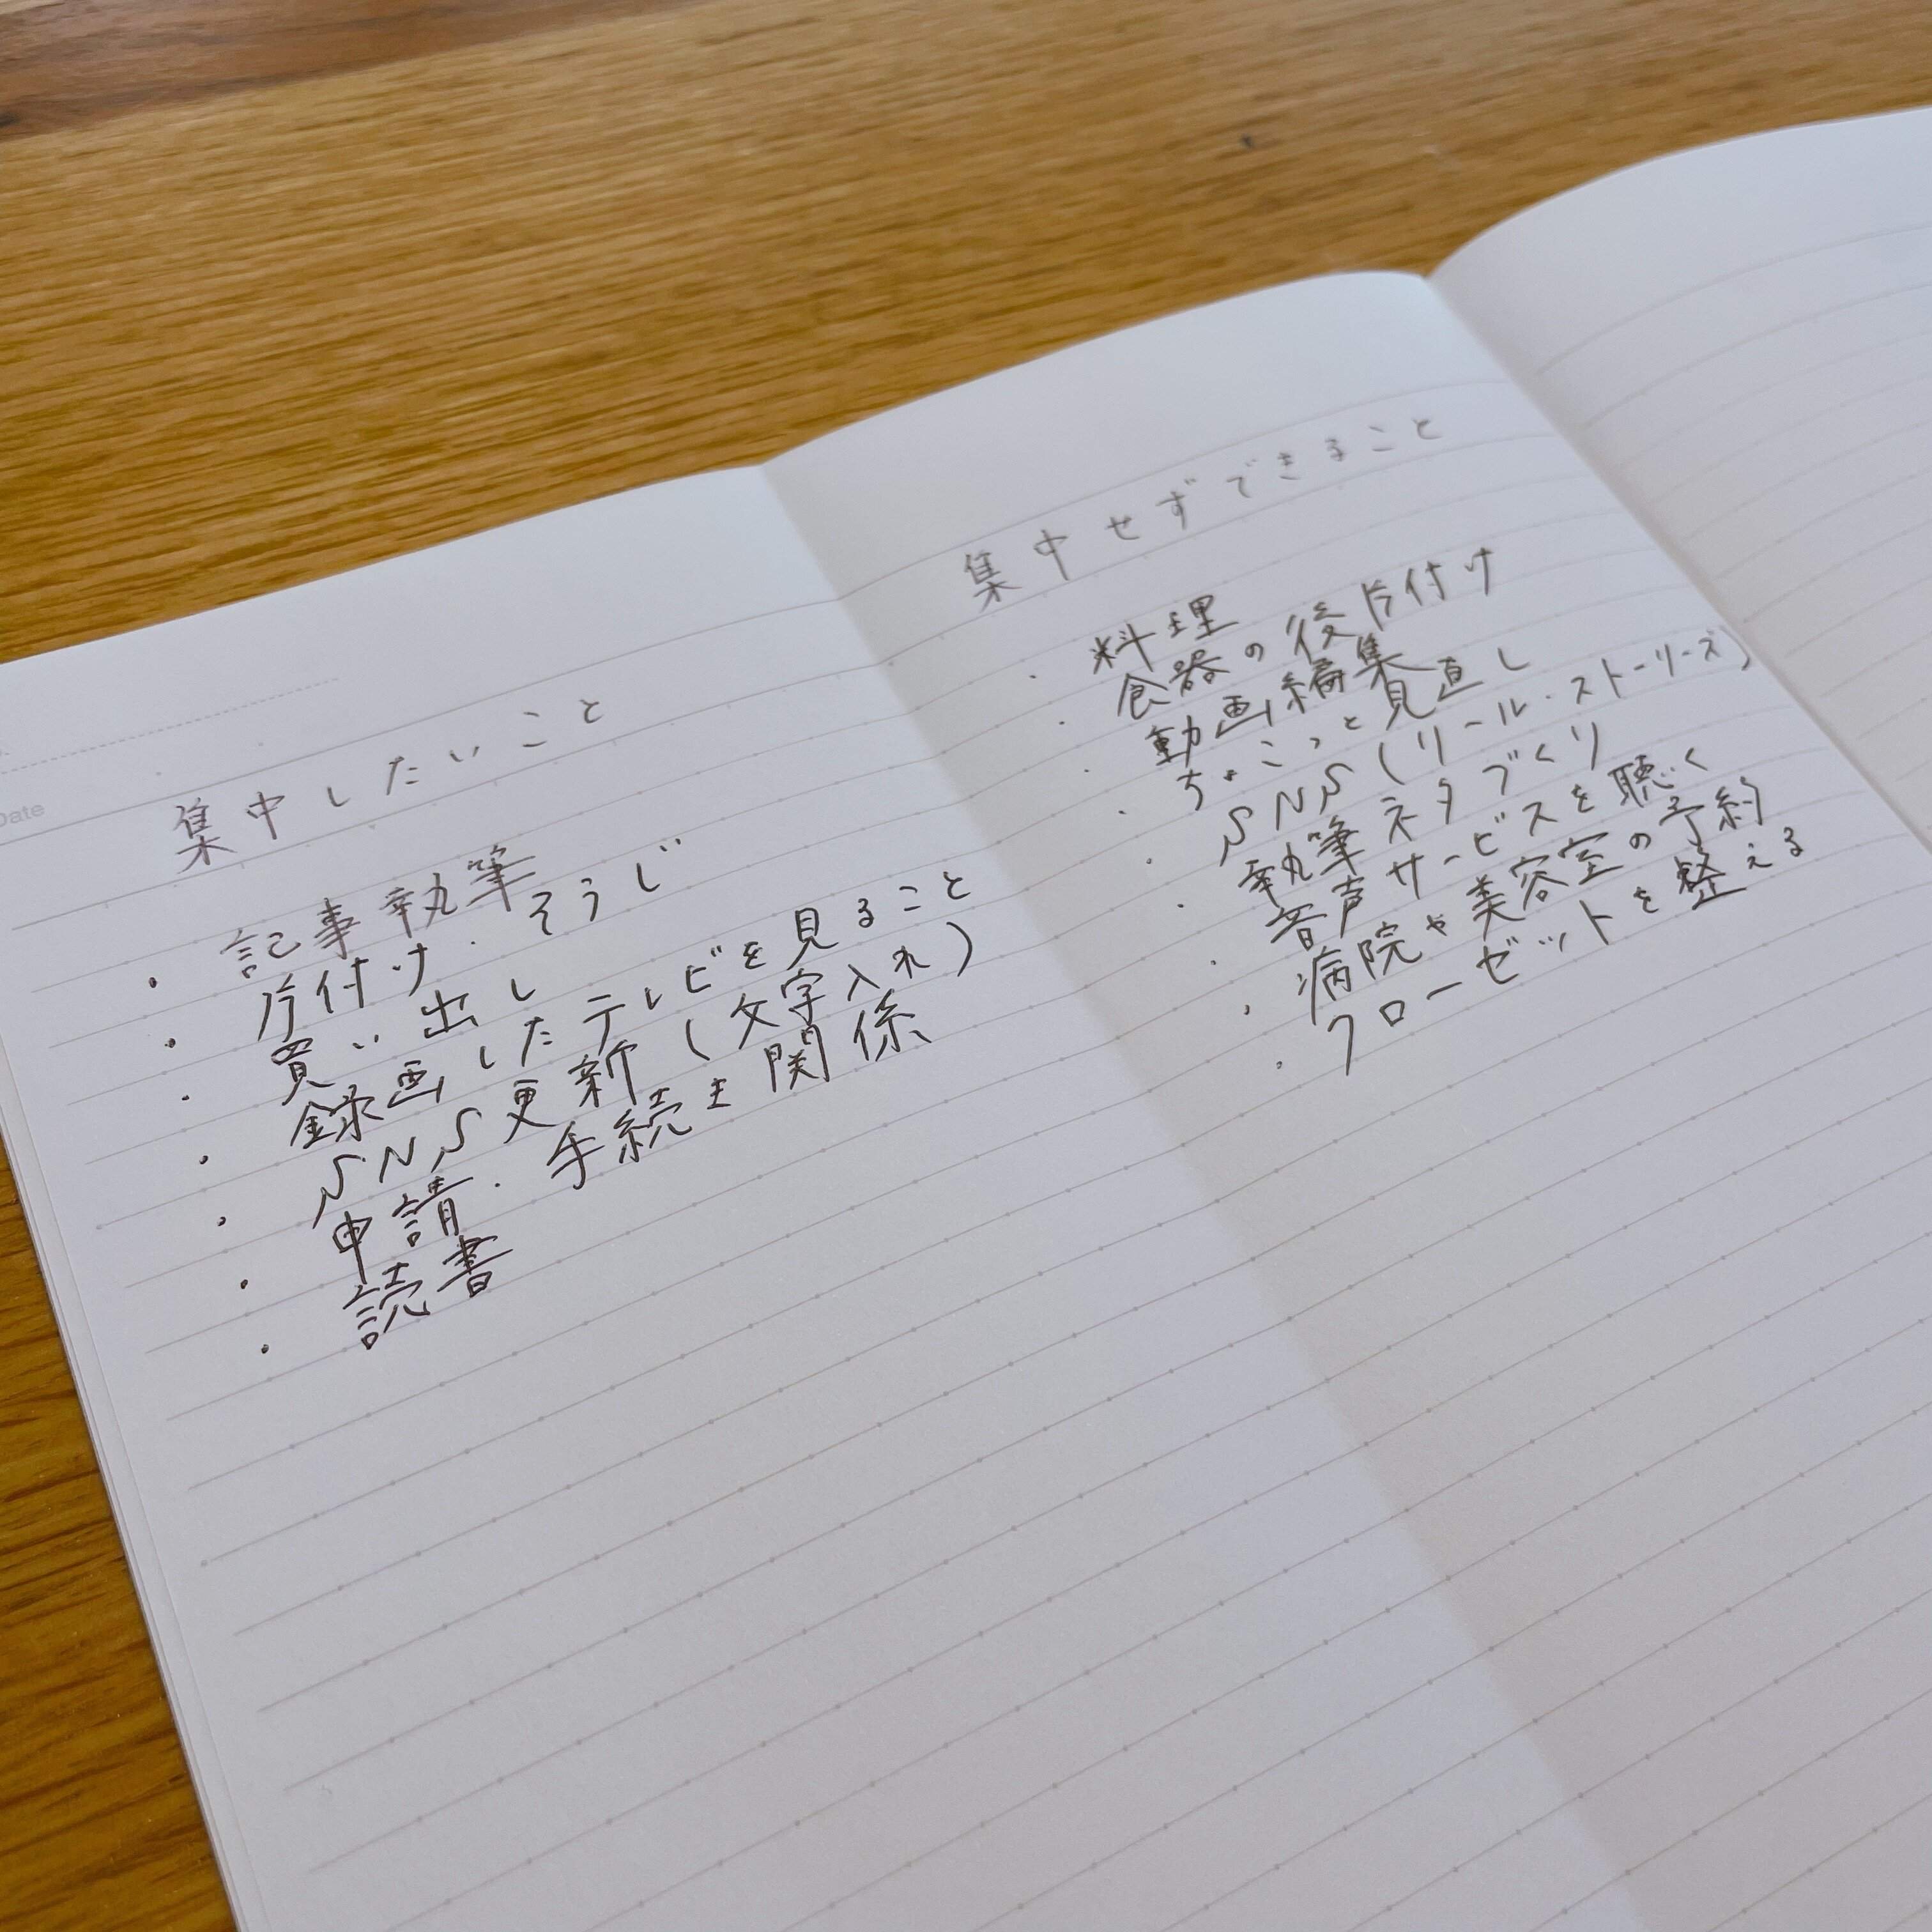 Date
集中したいこと
・記事執筆
・片付け・そうじ
・買い出し
・録画したテレビを見ること
・SNS更新(文字入れ)
・申請・手続き関係
・読書
集中せずできること
・料理
・食器の後片付け
・動画編集
・ちょこっと見直し
・SNS(リール・ストーリーズ)
・執筆ネタづくり
・音声サービスを聴く
・病院や美容室の予約
・クローゼットを整える